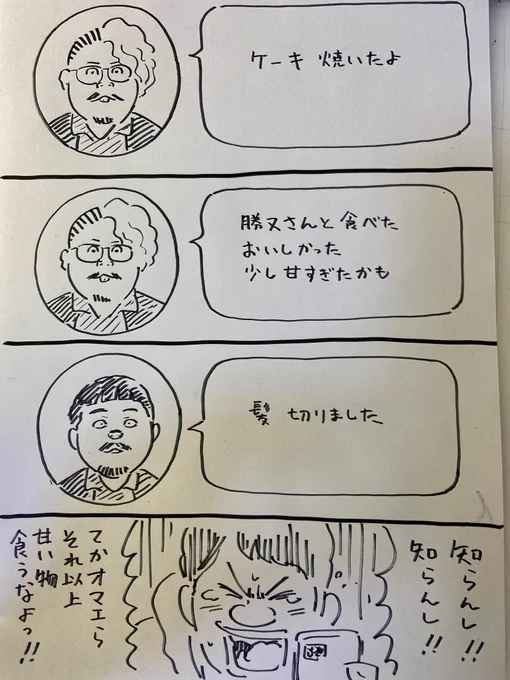 ケーキ 焼いたよ
勝又さんと食べた
おいしかった
少し甘すぎたかも
髪 切りました
知らんし!!
知らんし!!
てかオマエら
それ以上
甘い物
食うなよっ!!